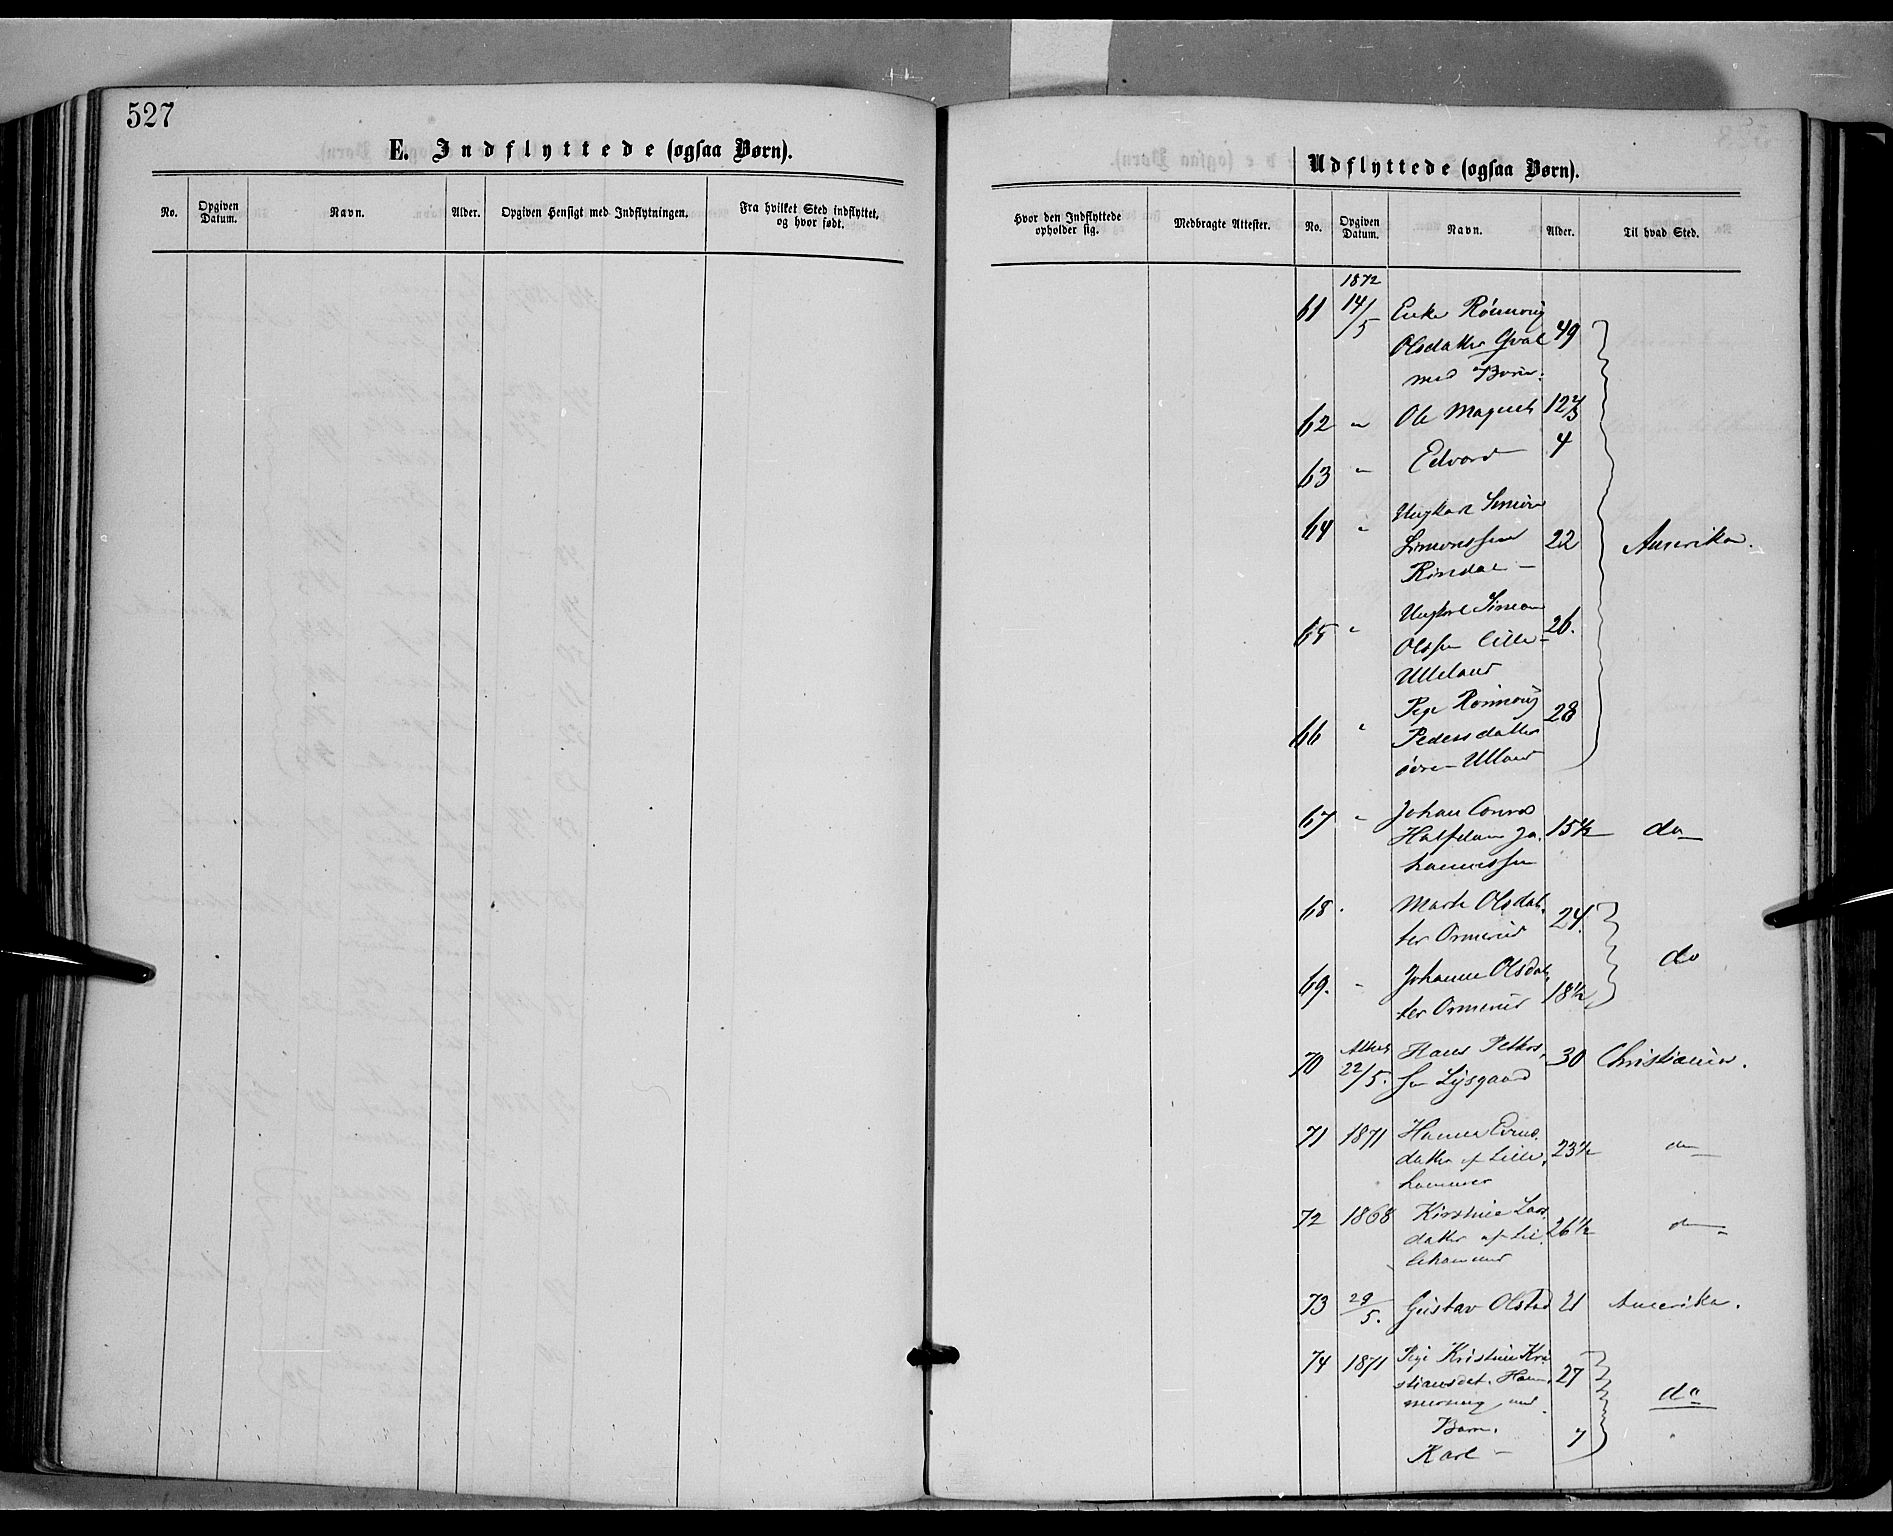 527
E. Indflyttede (ogsaa Børn).
No. Opgiven Datum. Navn. Alder. Opgiven Hensigt med Indflytningen. Fra hvilket Sted indflyttet, og hvor født.
Udflyttede (ogsaa Børn).
Hvor den Indflyttede opholder sig. Medbragte Attester. No. Opgiven Datum. Navn. Alder. Til hvad Sted.
1872
61 14/5 Enke Rønnoug
Olsdatter Hval 49
med Børn:
62 " Ole Magnus 12 2/3
63 " Edvard 4
64 " Ungkarl Simen
Simenssen 22 Amerika.
Rindal
65 " Ungkarl Simen
Olssen Lille- 26.
Ulleland
66 " Pige Rønnoug 28
Pedersdatter
øvre Ulland
67 " Johan Conrad
Halfdan Jo- 15 1/2 do
hannessen
68 " Marthe Olsdat-
ter Ormerud 24.
do
69. " Johanne Olsdat-
ter Ormerud 18 1/2
70 Attest 22/5. Hans Petters-
sen Lysgaard 30 Christiania.
71 1871 Hanna Evens-
datter af Lille- 23 1/2 do
hammer
72 1868 Kirstine Lars-
datter af Lil- 26 1/2 do
lehammer
73 29/5. Gustav Olstad 21 Amerika.
74 1871 Pige Kristine Kri-
stiansdat. Ham- 27
do
meeng med
Barn.
Karl 7